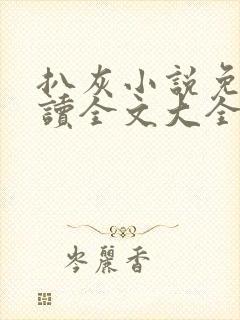 扒灰小說免
讀全文大全
岑麗香